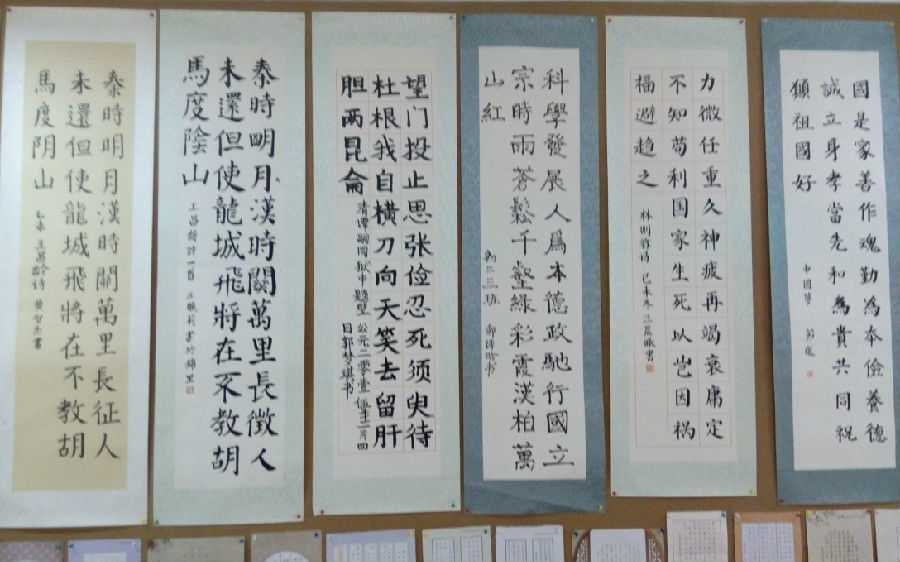 秦時明月漢時關萬里長征人
未還但使龍城飛將在不教胡
馬度阴山
乙未 王昌龄诗
秦時明月漢時關萬里長徵人
未還但使龍城飛將在不教胡
馬度陰山
王昌齡詩一首
望门投止思张俭忍死须臾待
杜根我自横刀向天笑去留肝
胆两昆侖
清谭嗣同狱中题壁 公元二零壹
日郭梦琪书
科學發展人爲本德政馳行國立
宗時雨蒼鬆千壑綠彩霞漢柏萬
山紅
初二三班
力微任重久神疲再竭衰庸定
不知苟利国家生死以岂因祸
福避趋之
林则徐诗
國是家善作魂勤為本儉養德
誠立身孝當先和為貴共同祝
願祖國好
中國夢 節選